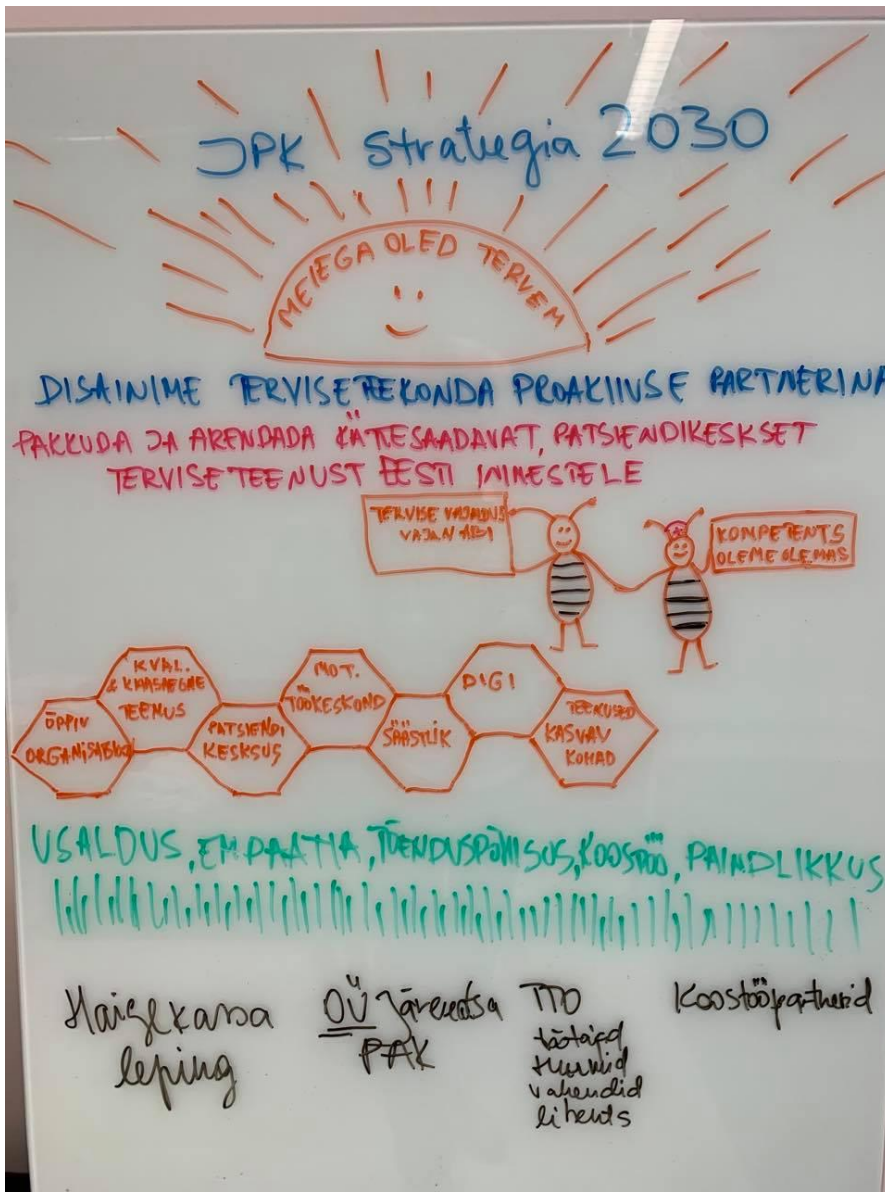 JPK Strateegia 2030
MEIEGA OLED TERVEM
DISAINIME TERVISETEEKONDA PROAKTIIVSE PARTNERINA
PAKKUDA JA ARENDADA KÄTTESAADAVAT, PATSIENDIKESKSET
TERVISETEENUST EESTI INIMESTELE
TERVISE VAJADUS
VAJAN ABI
KOMPETENTS
OLEME OLEMAS
ÕPPIV
ORGANISATSIOON
KVAL.
& KAASAEGNE
TEENUS
PATSIENDI
KESKSUS
MOT.
TÖÖKESKOND
SÄÄSTLIK
DIGI
TEENUSED
KASVAV
KOHAD
USALDUS, EMPAATIA, TÕENDUSPÕHISUS, KOOSTÖÖ, PAINDLIKKUS
Haigekassa
leping
OÜ Järveotsa
PAK
TTO
töötajad
ruumid
vahendid
litsents
Koostööpartnerid